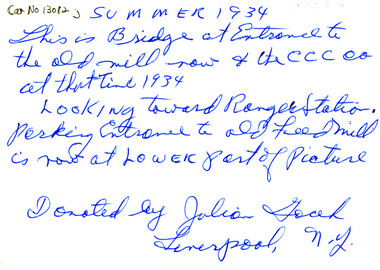 Cat No 13082 j SUMMER 1934
This is Bridge at Entrance to
the old mill now & the CCC Co
at that Time 1934
Looking toward Ranger Station.
Parking Entrance to old Feed mill
is now at LOWER part of Picture
Donated by Julian
Liverpool, N.Y.